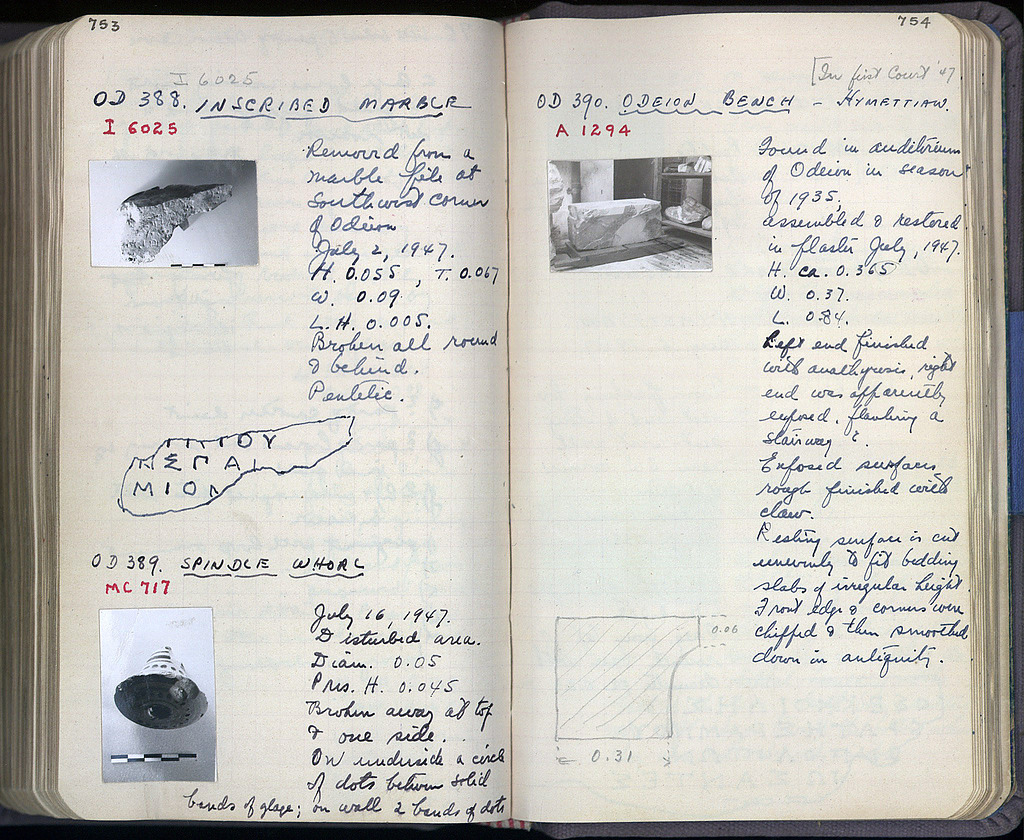 753
I 6025
OD 388. INSCRIBED MARBLE
I 6025
Removed from a
marble pile at
Southwest corner
of Odeion
July 2, 1947.
H. 0.055, T. 0.067
W. 0.09.
L.H. 0.005.
Broken all round
& behind.
Pentelic.
ΠΠΤΟΥ
ΠΕΓΑΙ
ΜΙΟΝ
OD 389. SPINDLE WHORL
MC 717
July 16, 1947.
Disturbed area.
Diam. 0.05
Pres. H. 0.045
Broken away at top
& one side.
On underside a circle
of dots between solid
bands of glaze; on wall 2 bands of dots
754
[In first Court '47.
OD 390. ODEION BENCH – HYMETTIAN.
A 1294
Found in auditorium
of Odeion in season
of 1935,
assembled & restored
in plaster July, 1947.
H. ca. 0.365
W. 0.37.
L. 0.84.
Left end finished
with anathyrosis, right
end was apparently
exposed, flanking a
stairway
Exposed surfaces
rough finished with
claw.
Resting surface is cut
unevenly to fit bedding
slabs of irregular height.
Front edge & corners were
chipped & then smoothed
down in antiquity.
0.06
0.31